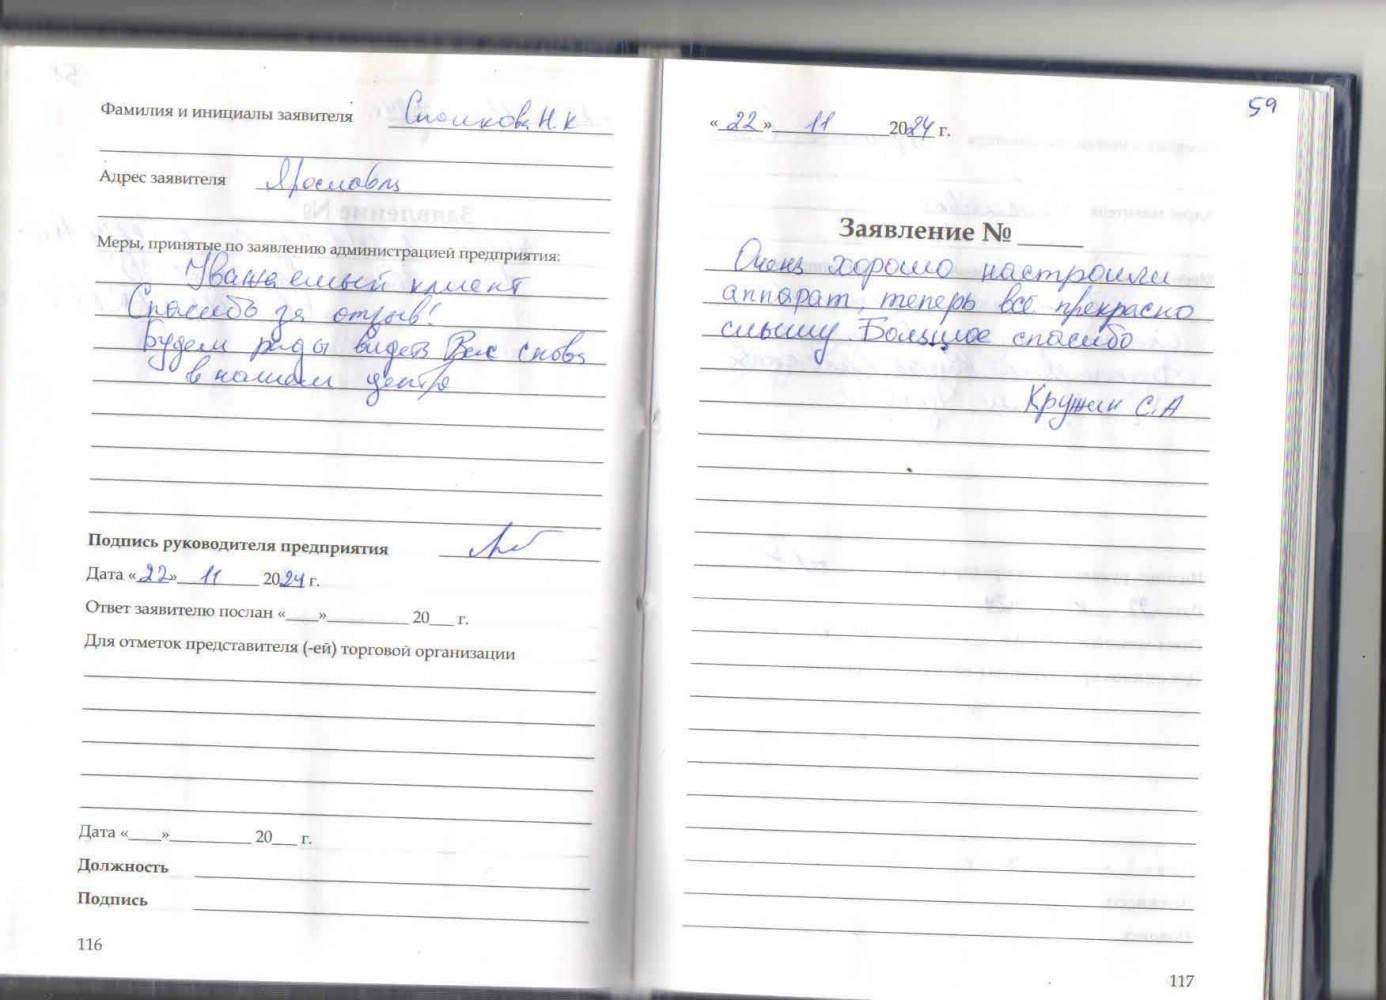 Фамилия и инициалы заявителя Н.К
Адрес заявителя Ярославль
Меры, принятые по заявлению администрацией предприятия:
Уважаемый клиент
Спасибо за отзыв!
Будем рады видеть Вас снова
в нашем центре
Подпись руководителя предприятия
Дата «22» 11 2024 г.
Ответ заявителю послан «____»__________ 20___ г.
Для отметок представителя (-ей) торговой организации
Дата «____»__________ 20___ г.
Должность
Подпись
116
59
«22» 11 2024 г.
Заявление № _____
Очень хорошо настроили
аппарат, теперь все прекрасно
слышу. Большое спасибо
Кружин С.А
117